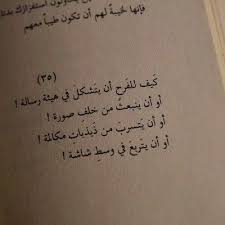 فإنها لخيبةٌ لهم أن تكون طيباً معهم
(٣٥)
كَيف للفرح أن يتَشكلَ في هيئة رسالة !
أو أن ينبعثُ من خلف صورة !
أو أن يتسربَ من ذبذبات مكالمة !
أو أن يتربعَ في وسطِ شاشة !